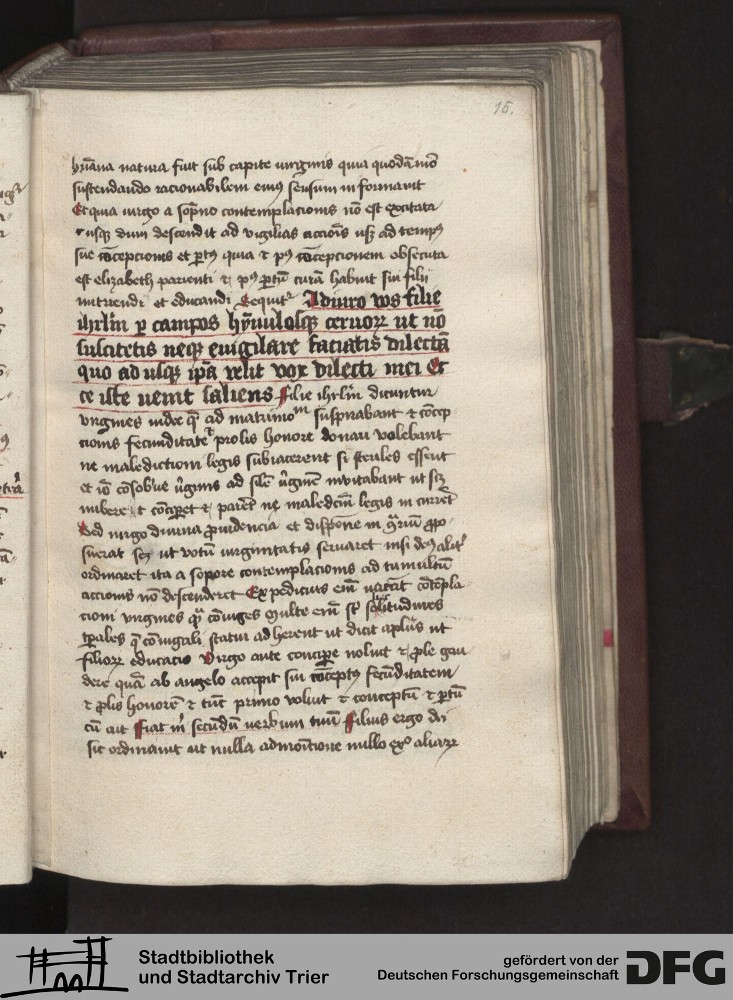 15.
hūana natura fuit sub capite virginis quia quodā mō
sustendando racionabilem eius sensum informavit
Et quia virgo a sopno contemplacionis nō est excitata
usq dum descendit ad vigilias accōis usq ad tempus
sue cōcepcionis et ptus quia et pus cōcepcionem obsecuta
est elizabeth parienti et pus ptū curā habuit sui filii
nutriendi et educandi Sequitr Adiuro vos filie
ihrlm p campos hynulosq cervorr ut nō
suscitetis neq evigilare faciatis dilectā
quo ad usq ipa velit vox dilecti mei Ec
ce iste venit saliens filie ihrlm dicuntur
virgines iudee q ad matrimom suspirabant et cōcep
cionis fecunditate prolis honore donari volebant
ne maledictioni legis subiacerent si steriles essent
et iō virginē invitabant ut scz
nubere et et ne maledcm legis in
Sed virgo divina providencia et
suerat scz ut votū virginitatis servaret nisi deus alitr
ordinaret ita a sopore contemplacionis ad tumultū
accionis nō descenderet Expedicius eim vacat cōtēpla
cioni virgines qz cōiuges Multe eim st solitudines
tpales q cōiugali statui adherent ut dicit aplus ut
filiorr educacio Virgo ante concipe noluit et ple gau
dere quā ab angelo accepit sui cōceptus fecūditatem
et plis honorē et tūc primo voluit et conceptū et ptū
cū ait fiat m secūdū verbum tuū filius ergo dei
sic ordinavit ut nulla admōicione nullo exo aliarr
Stadtbibliothek
und Stadtarchiv Trier
gefördert von der
Deutschen Forschungsgemeinschaft
DFG